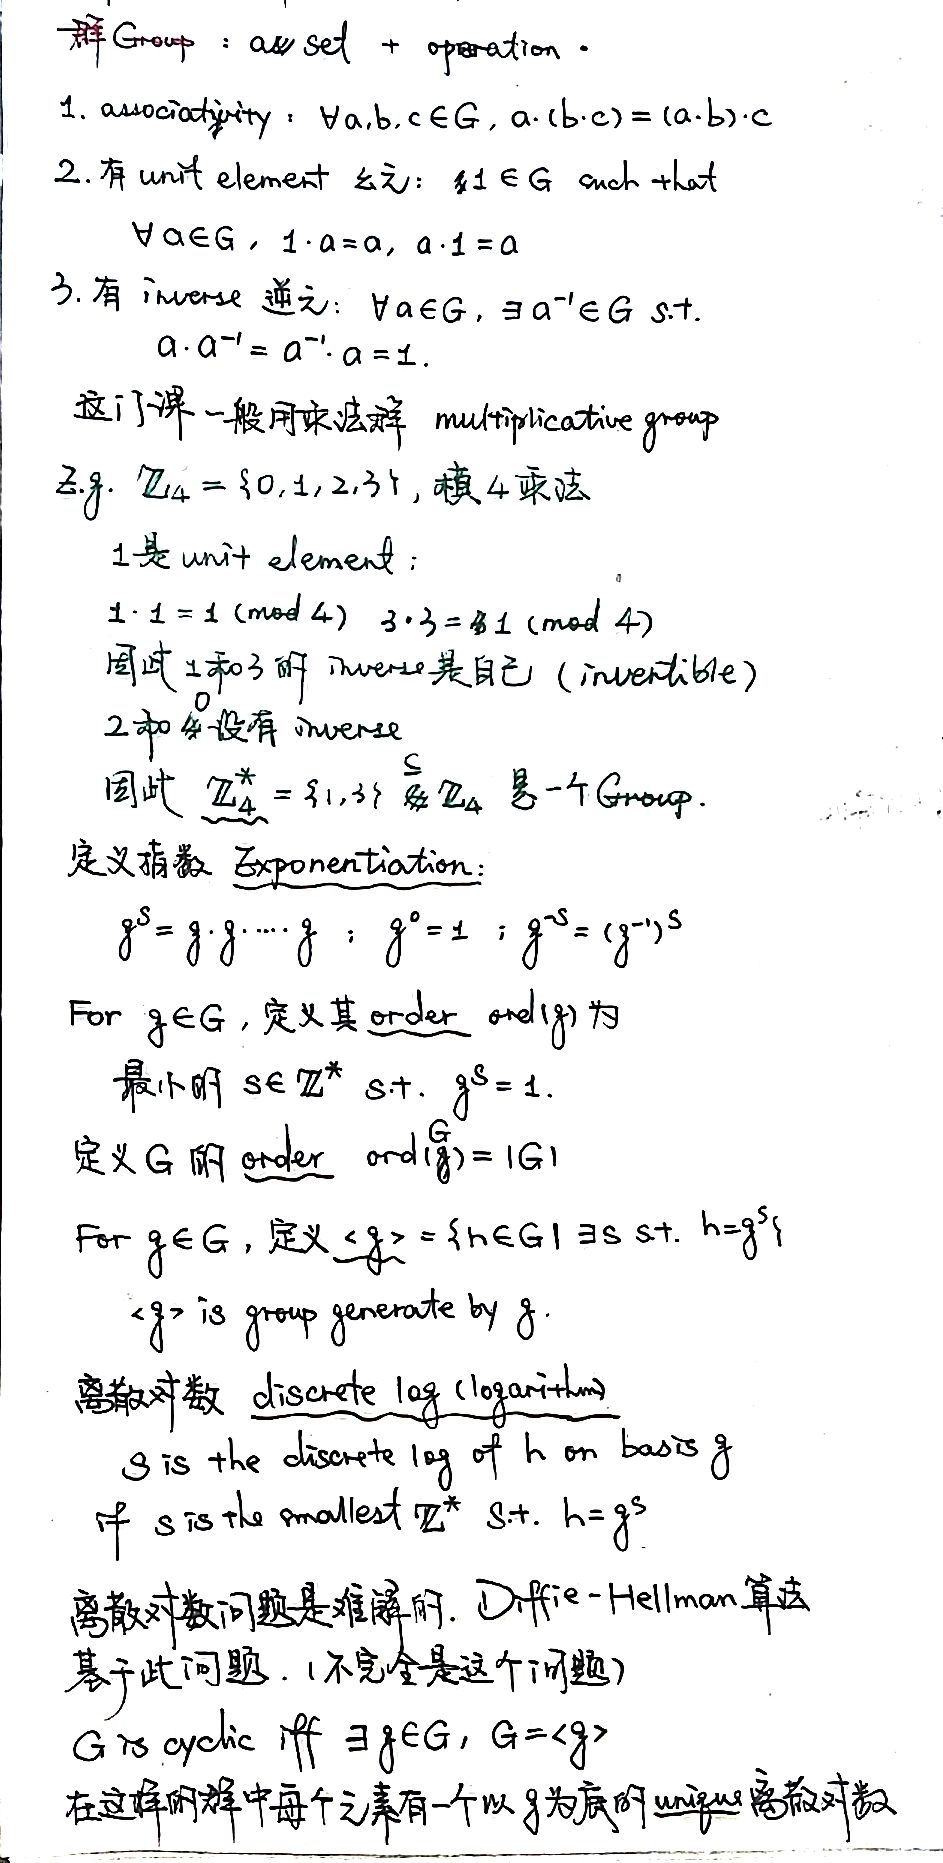 群 Group : a set + operation.
1. associativity : ∀a,b,c∈G, a·(b·c)=(a·b)·c
2. 有 unit element 幺元: 1∈G such that
∀a∈G, 1·a=a, a·1=a
3. 有 inverse 逆元: ∀a∈G, ∃a⁻¹∈G s.t.
a·a⁻¹=a⁻¹·a=1.
这门课一般用乘法群 multiplicative group
E.g. ℤ₄={0,1,2,3}, 模4乘法
1是 unit element:
1·1=1 (mod 4) 3·3=1 (mod 4)
因此1和3的 inverse是自己 (invertible)
2和0没有 inverse
因此 ℤ₄*={1,3} ⊆ ℤ₄ 是一个Group.
定义指数 Exponentiation:
gˢ=g·g·····g ; g⁰=1 ; g⁻ˢ=(g⁻¹)ˢ
For g∈G, 定义其 order ord(g) 为
最小的 s∈ℤ* s.t. gˢ=1.
定义G的 order ord(G)=|G|
For g∈G, 定义 <g>={h∈G| ∃s s.t. h=gˢ}
<g> is group generate by g.
离散对数 discrete log (logarithm)
s is the discrete log of h on basis g
if s is the smallest ℤ* s.t. h=gˢ
离散对数问题是难解的. Diffie-Hellman算法
基于此问题. (不完全是这个问题)
G is cyclic iff ∃g∈G, G=<g>
在这样的群中每个元素有一个以g为底的unique离散对数